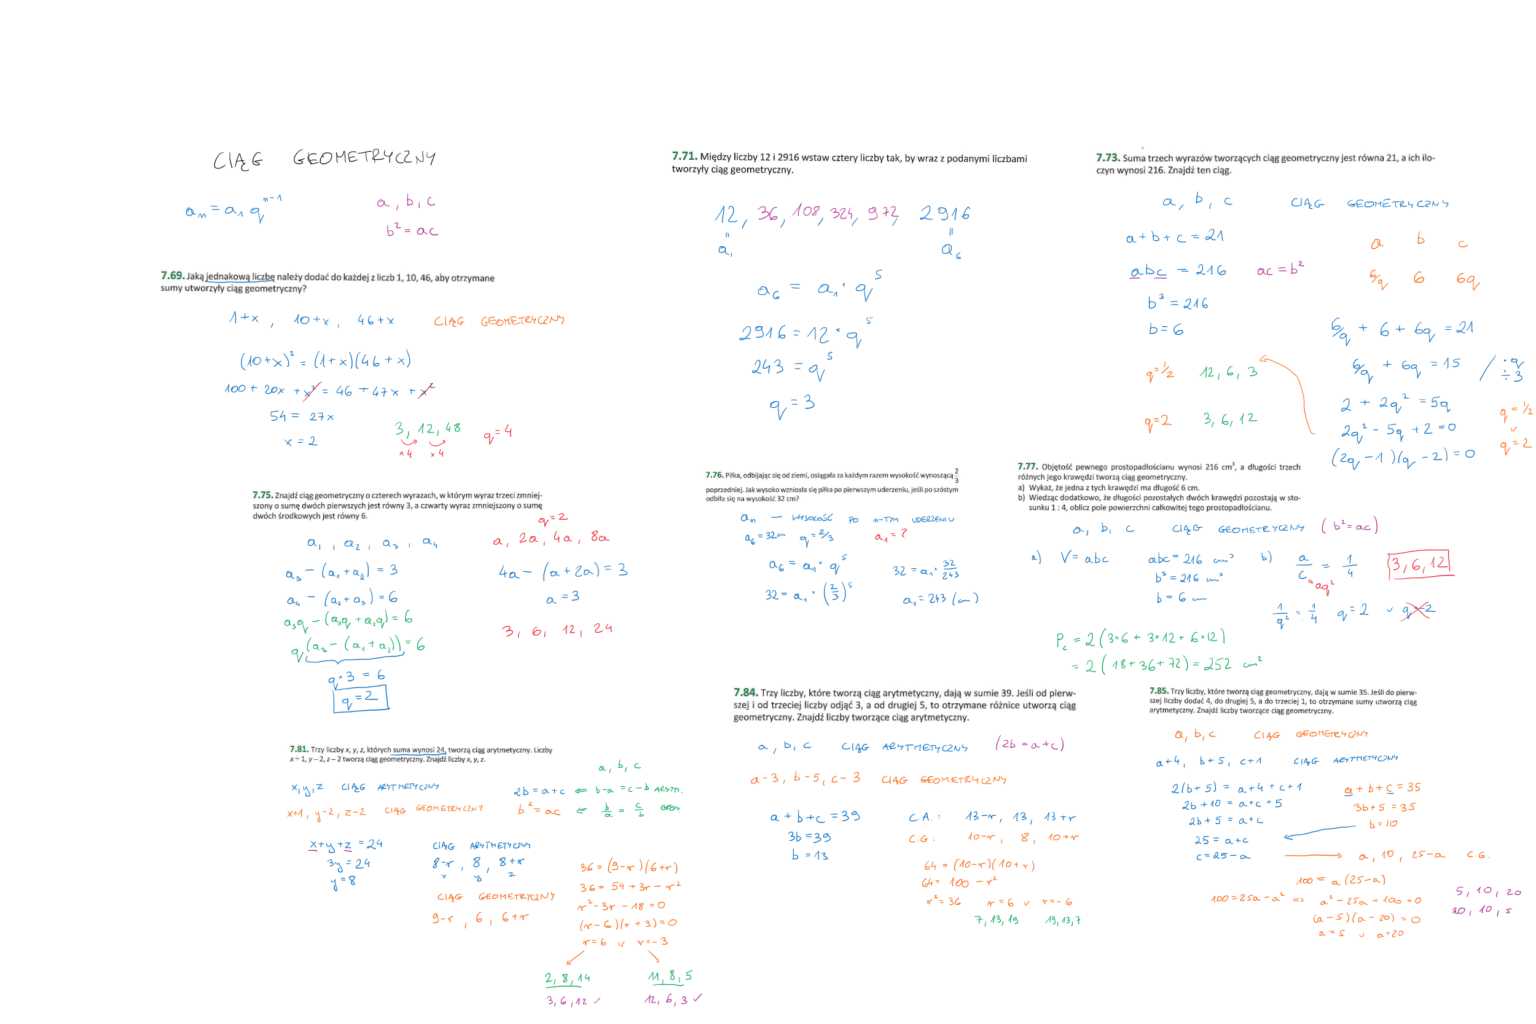 CIĄG GEOMETRYCZNY
aₙ = a₁ qⁿ⁻¹
a, b, c
b² = ac
7.69. Jaką jednakową liczbę należy dodać do każdej z liczb 1, 10, 46, aby otrzymane
sumy utworzyły ciąg geometryczny?
1+x , 10+x , 46+x CIĄG GEOMETRYCZNY
(10+x)² = (1+x)(46+x)
100 + 20x + x² = 46 + 47x + x²
54 = 27x
x = 2
3, 12, 48 q=4
x4 x4
7.71. Między liczby 12 i 2916 wstaw cztery liczby tak, by wraz z podanymi liczbami
tworzyły ciąg geometryczny.
12, 36, 108, 324, 972, 2916
a₁ a₆
a₆ = a₁ · q⁵
2916 = 12 · q⁵
243 = q⁵
q = 3
7.73. Suma trzech wyrazów tworzących ciąg geometryczny jest równa 21, a ich ilo-
czyn wynosi 216. Znajdź ten ciąg.
a, b, c CIĄG GEOMETRYCZNY
a+b+c = 21
abc = 216 ac = b²
b³ = 216
b = 6
q=½ 12, 6, 3
q=2 3, 6, 12
a b c
6/q 6 6q
6/q + 6 + 6q = 21
6/q + 6q = 15 / ·q ÷3
2 + 2q² = 5q
2q² - 5q + 2 = 0
(2q - 1)(q - 2) = 0
q = ½
∨
q = 2
7.75. Znajdź ciąg geometryczny o czterech wyrazach, w którym wyraz trzeci zmniej-
szony o sumę dwóch pierwszych jest równy 3, a czwarty wyraz zmniejszony o sumę
dwóch środkowych jest równy 6.
a₁ , a₂ , a₃ , a₄
a₃ - (a₁+a₂) = 3
a₄ - (a₂+a₃) = 6
a₃q - (a₁q + a₂q) = 6
q(a₃ - (a₁+a₂)) = 6
q·3 = 6
q = 2
q=2
a, 2a, 4a, 8a
4a - (a+2a) = 3
a = 3
3, 6, 12, 24
7.76. Piłka, odbijając się od ziemi, osiągała za każdym razem wysokość wynoszącą 2/3
poprzedniej. Jak wysoko wzniosła się piłka po pierwszym uderzeniu, jeśli po szóstym
odbiła się na wysokość 32 cm?
aₙ — WYSOKOŚĆ PO n-TYM UDERZENIU
a₆ = 32cm q = 2/3 a₁ = ?
a₆ = a₁ · q⁵
32 = a₁ · (2/3)⁵
32 = a₁ · 32/243
a₁ = 243 (cm)
7.77. Objętość pewnego prostopadłościanu wynosi 216 cm³, a długości trzech
różnych jego krawędzi tworzą ciąg geometryczny.
a) Wykaż, że jedna z tych krawędzi ma długość 6 cm.
b) Wiedząc dodatkowo, że długości pozostałych dwóch krawędzi pozostają w sto-
sunku 1 : 4, oblicz pole powierzchni całkowitej tego prostopadłościanu.
a, b, c CIĄG GEOMETRYCZNY (b² = ac)
a) V = abc
abc = 216 cm³
b³ = 216 cm³
b = 6 cm
b) a/c = 1/4
= aq²
3, 6, 12
1/q² = 1/4 q = 2 ∨ q = -2
P_c = 2(3·6 + 3·12 + 6·12)
= 2(18 + 36 + 72) = 252 cm²
7.81. Trzy liczby x, y, z, których suma wynosi 24, tworzą ciąg arytmetyczny. Liczby
x + 1, y – 2, z – 2 tworzą ciąg geometryczny. Znajdź liczby x, y, z.
x, y, z CIĄG ARYTMETYCZNY
x+1, y-2, z-2 CIĄG GEOMETRYCZNY
a, b, c
2b = a+c ⇐ b-a = c-b ARYTM.
b² = ac ⇐ b/a = c/b GEOM
x+y+z = 24
3y = 24
y = 8
CIĄG ARYTMETYCZNY
8-r , 8 , 8+r
x y z
CIĄG GEOMETRYCZNY
9-r , 6 , 6+r
36 = (9-r)(6+r)
36 = 54 + 3r - r²
r² - 3r - 18 = 0
(r-6)(r+3) = 0
r = 6 ∨ r = -3
2, 8, 14 11, 8, 5
3, 6, 12 ✓ 12, 6, 3 ✓
7.84. Trzy liczby, które tworzą ciąg arytmetyczny, dają w sumie 39. Jeśli od pierw-
szej i od trzeciej liczby odjąć 3, a od drugiej 5, to otrzymane różnice utworzą ciąg
geometryczny. Znajdź liczby tworzące ciąg arytmetyczny.
a, b, c CIĄG ARYTMETYCZNY (2b = a+c)
a-3, b-5, c-3 CIĄG GEOMETRYCZNY
a+b+c = 39
3b = 39
b = 13
C.A.: 13-r, 13, 13+r
C.G: 10-r, 8, 10+r
64 = (10-r)(10+r)
64 = 100 - r²
r² = 36 r = 6 ∨ r = -6
7, 13, 19 19, 13, 7
7.85. Trzy liczby, które tworzą ciąg geometryczny, dają w sumie 35. Jeśli do pierw-
szej liczby dodać 4, do drugiej 5, a do trzeciej 1, to otrzymane sumy utworzą ciąg
arytmetyczny. Znajdź liczby tworzące ciąg geometryczny.
a, b, c CIĄG GEOMETRYCZNY
a+4, b+5, c+1 CIĄG ARYTMETYCZNY
2(b+5) = a+4 + c+1
2b + 10 = a+c + 5
2b + 5 = a+c
25 = a+c
c = 25-a
a + b + c = 35
3b+5 = 35
b = 10
a, 10, 25-a C.G.
100 = a(25-a)
100 = 25a - a² ⇒ a² - 25a + 100 = 0
(a-5)(a-20) = 0
a = 5 ∨ a = 20
5, 10, 20
20, 10, 5